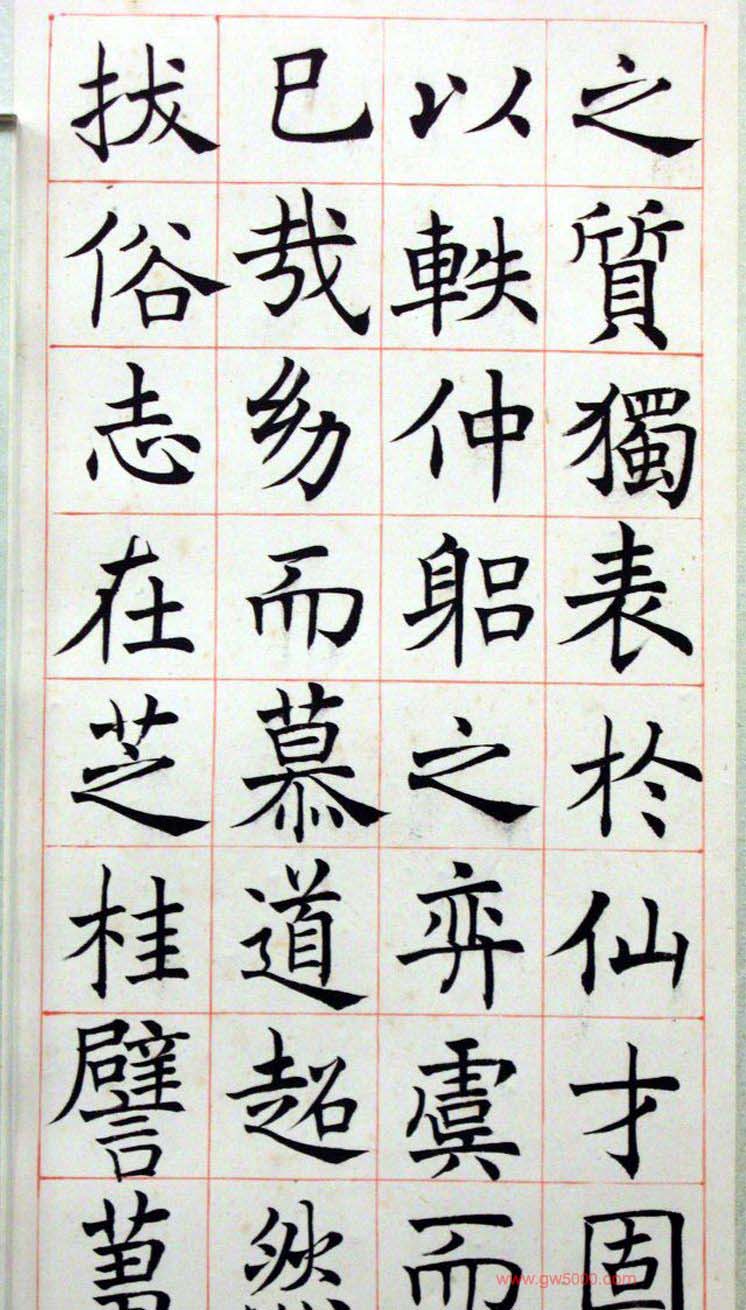 之質獨表於仙才固
以軼仲躳之弈虞而
巳哉幼而慕道超
拔俗志在芝桂譬
www.gw5000.com